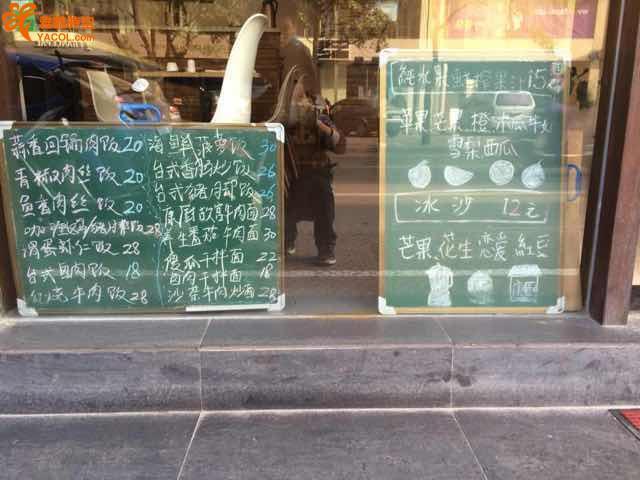 YACOL.COM
蒜香回锅肉饭 20
青椒肉丝饭 20
鱼香肉丝饭 20
咖喱鸡/猪排饭 28
滑蛋虾仁饭 28
台式卤肉饭 18
红烧牛肉饭 28
海鲜菠萝饭 30
台式香肠炒饭 26
台式猪肉卸饭 26
原厨牛肉面 28
养生番茄牛肉面 30
傻瓜干拌面 22
卤肉干拌面 18
沙茶牛肉炒面 28
純水果鮮榨果汁15
苹果芒果橙木瓜牛女
雪梨西瓜
冰沙 12元
芒果、花生恋爱紅豆